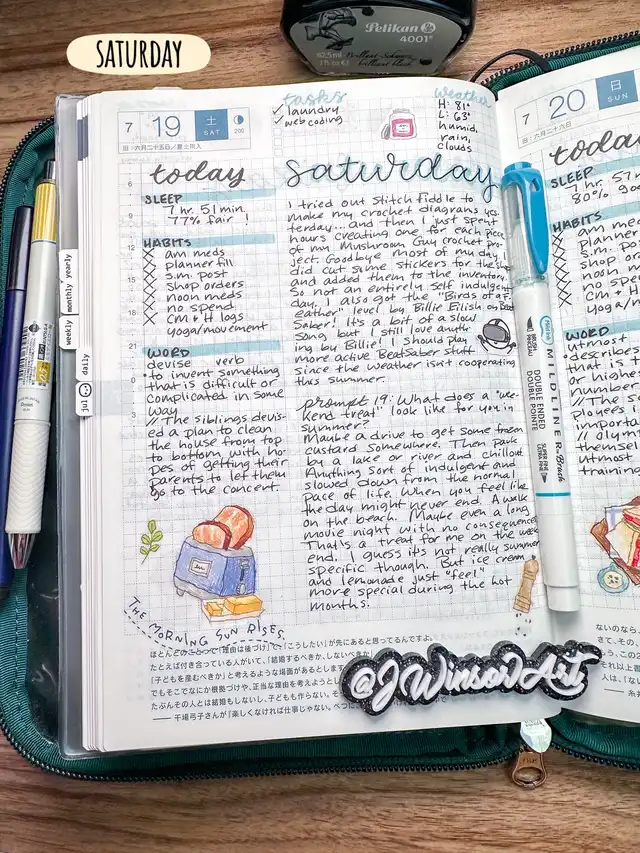 SATURDAY
Pelikan
4001
62.5ml
7 19 土 SAT
旧:六月二十五日/夏土用入
200
tasks
✓ laundry
✓ web coding
weather
H: 81°
L: 63°
humid,
rain,
clouds
today
SLEEP
7 hr. 51 min.
77% fair!
HABITS
am meds
planner fill
s.m. post
shop orders
noon meds
no spend
CM + H logs
yoga/movement
WORD
devise verb
to invent something
that is difficult or
complicated in some
way
// The siblings devis-
ed a plan to clean
the house from top
to bottom with ho-
pes of getting their
parents to let them
go to the concert.
saturday
I tried out Stitch Fiddle to
make my crochet diagrams yes-
terday...and then I just spent
hours creating one for each piece
of my Mushroom Guy crochet pro-
ject. Goodbye most of my day. I
did cut some stickers for the shop
and added them to the inventory.
So not an entirely self indulgent
day. I also got the "Birds of a F-
eather" level by Billie Eilish on Beat
Saber! It's a bit of a slow
song but I still love anyth-
ing by Billie! I should play
more active BeatSaber stuff
since the weather isn't cooperating
this summer.
prompt 19: What does a "wee-
kend treat" look like for you in
summer?
Maybe a drive to get some frozen
custard somewhere. Then park
by a lake or river and chillout.
Anything sort of indulgent and
slowed down from the normal
pace of life. When you feel like
the day might never end. A walk
on the beach. Maybe even a long
movie night with no consequence
That's a treat for me on the week
end. I guess it's not really summer
specific though. But ice cream
and lemonade just "feel"
more special during the hot
months.
THE MORNING SUN RISES.
ほとんどのことって「理由は後づけ」で「こうしたい」が先にあると思ってるんですよ。
たとえば付き合っている人がいて、「結婚するべきか、しないべきか」
「子どもを産むべきか」と考えるような場面があるとします
でもそこでなにか根拠づけや、正当な理由を考えようとし
たぶんその人とは結婚もしないし、子どもも作らない。そ
── 干場弓子さんが『楽しくなければ仕事じゃない。べつに
monthly yearly
weekly
daily
jul
MILDLINER Brush
DOUBLE ENDED
DOUBLE POINTE
BRUSH
PINCEAU
SUPER FINE
@JWinsorArt
7 20 日 SUN
旧:六月二十六日
today
SLEEP
7 hr. 57
80% go
HABITS
am me
planner
s.m. po
shop o
noon m
no spe
CM + H
yoga/m
WORD
utmost
describes
that is
or highes
number
// The Sa
ployees
importa
// Alyn
themsel
utmost
training
ないのなら、